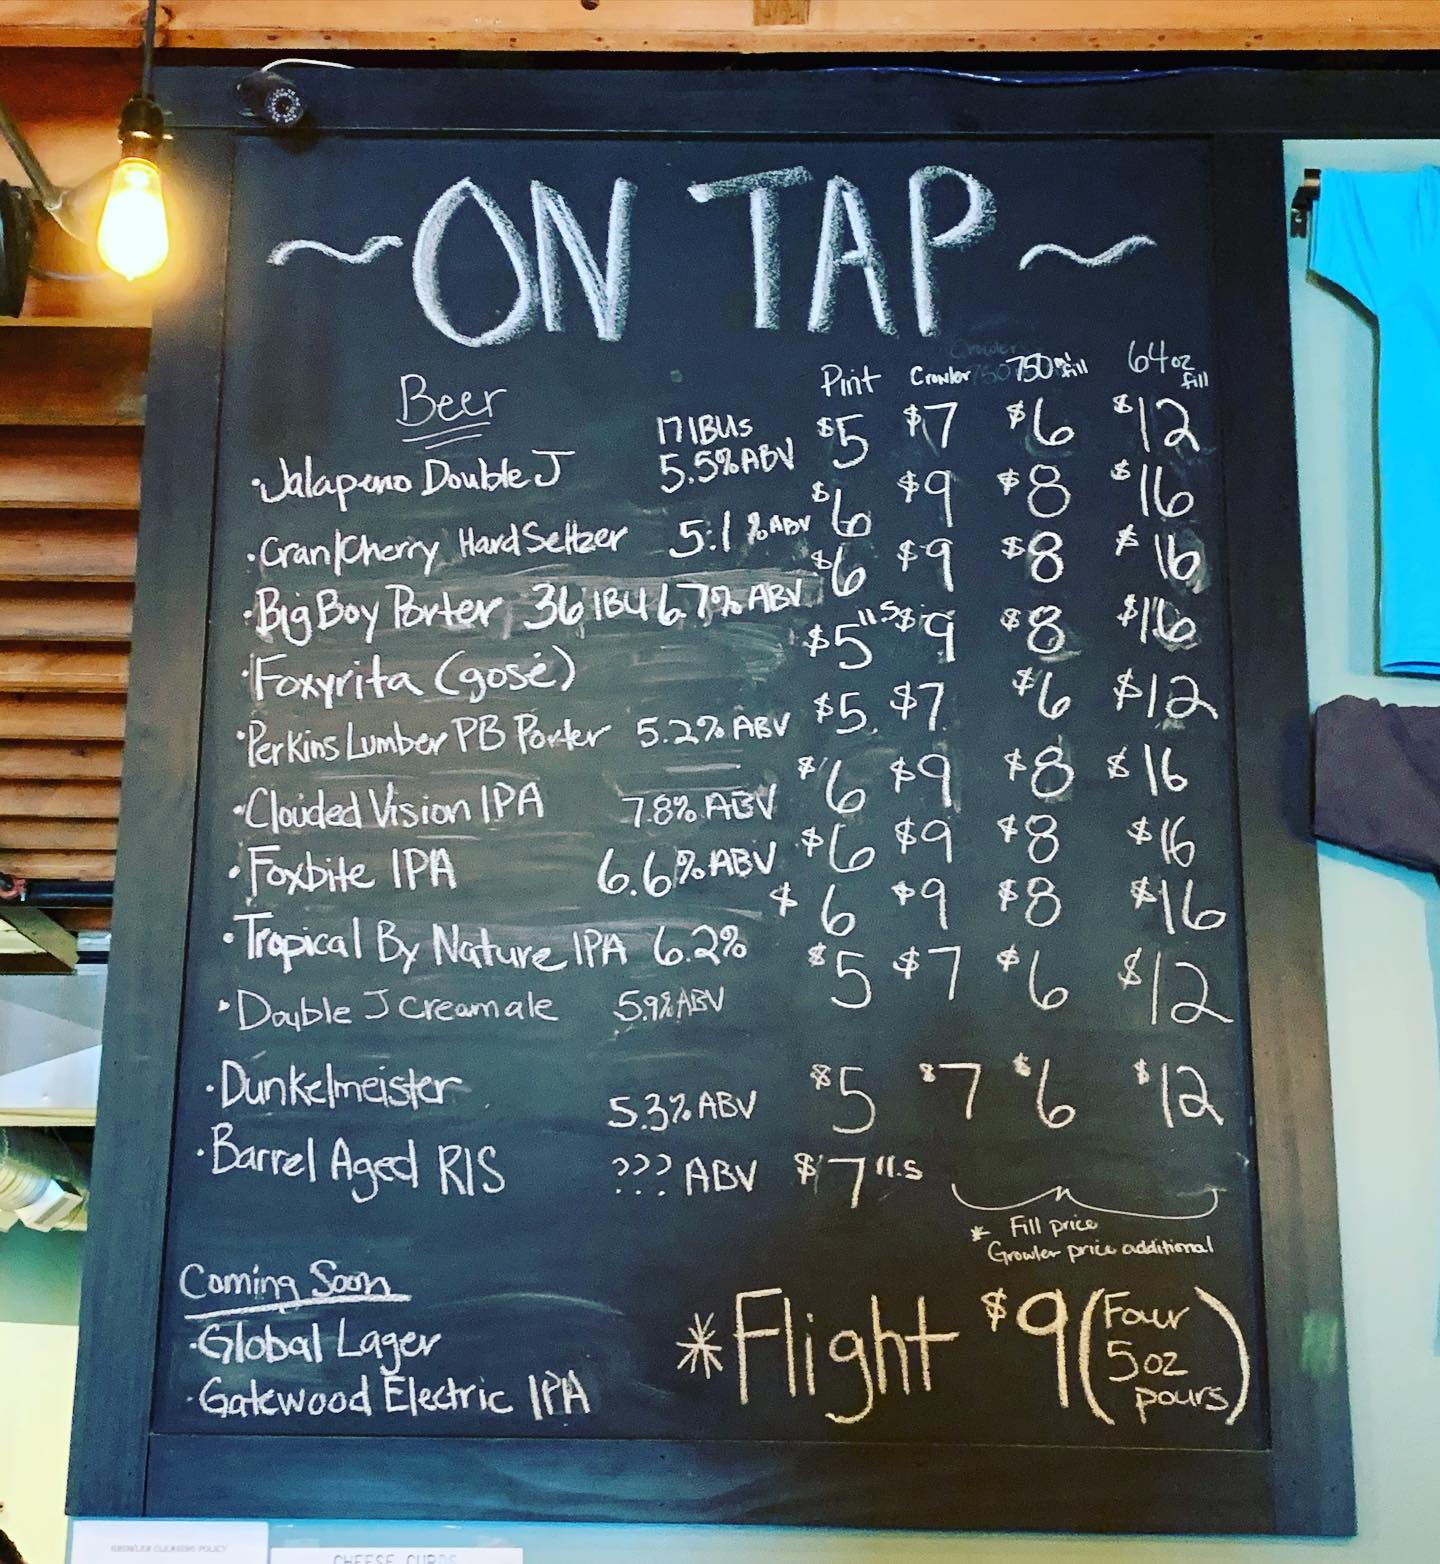 ~ON TAP~
Beer Pint Crowler 750ml fill 64oz fill
·Jalapeno Double J 17 IBUs 5.5% ABV $5 $7 $6 $12
·Cran/Cherry Hard Seltzer 5.1% ABV $6 $9 $8 $16
·Big Boy Porter 36 IBU 6.7% ABV $6 $9 $8 $16
·Foxyrita (gosé) $5 11.5 $9 $8 $16
·Perkins Lumber PB Porter 5.2% ABV $5 $7 $6 $12
·Clouded Vision IPA 7.8% ABV $6 $9 $8 $16
·Foxbite IPA 6.6% ABV $6 $9 $8 $16
·Tropical By Nature IPA 6.2% $6 $9 $8 $16
·Double J Creamale 5.9% ABV $5 $7 $6 $12
·Dunkelmeister 5.3% ABV $5 $7 $6 $12
·Barrel Aged RIS ??? ABV $7 11.5
* Fill price
Growler price additional
Coming Soon
·Global Lager
·Gatewood Electric IPA
*Flight $9 (Four 5oz pours)
GROWLER CLEANING POLICY
CHEESE CURDS